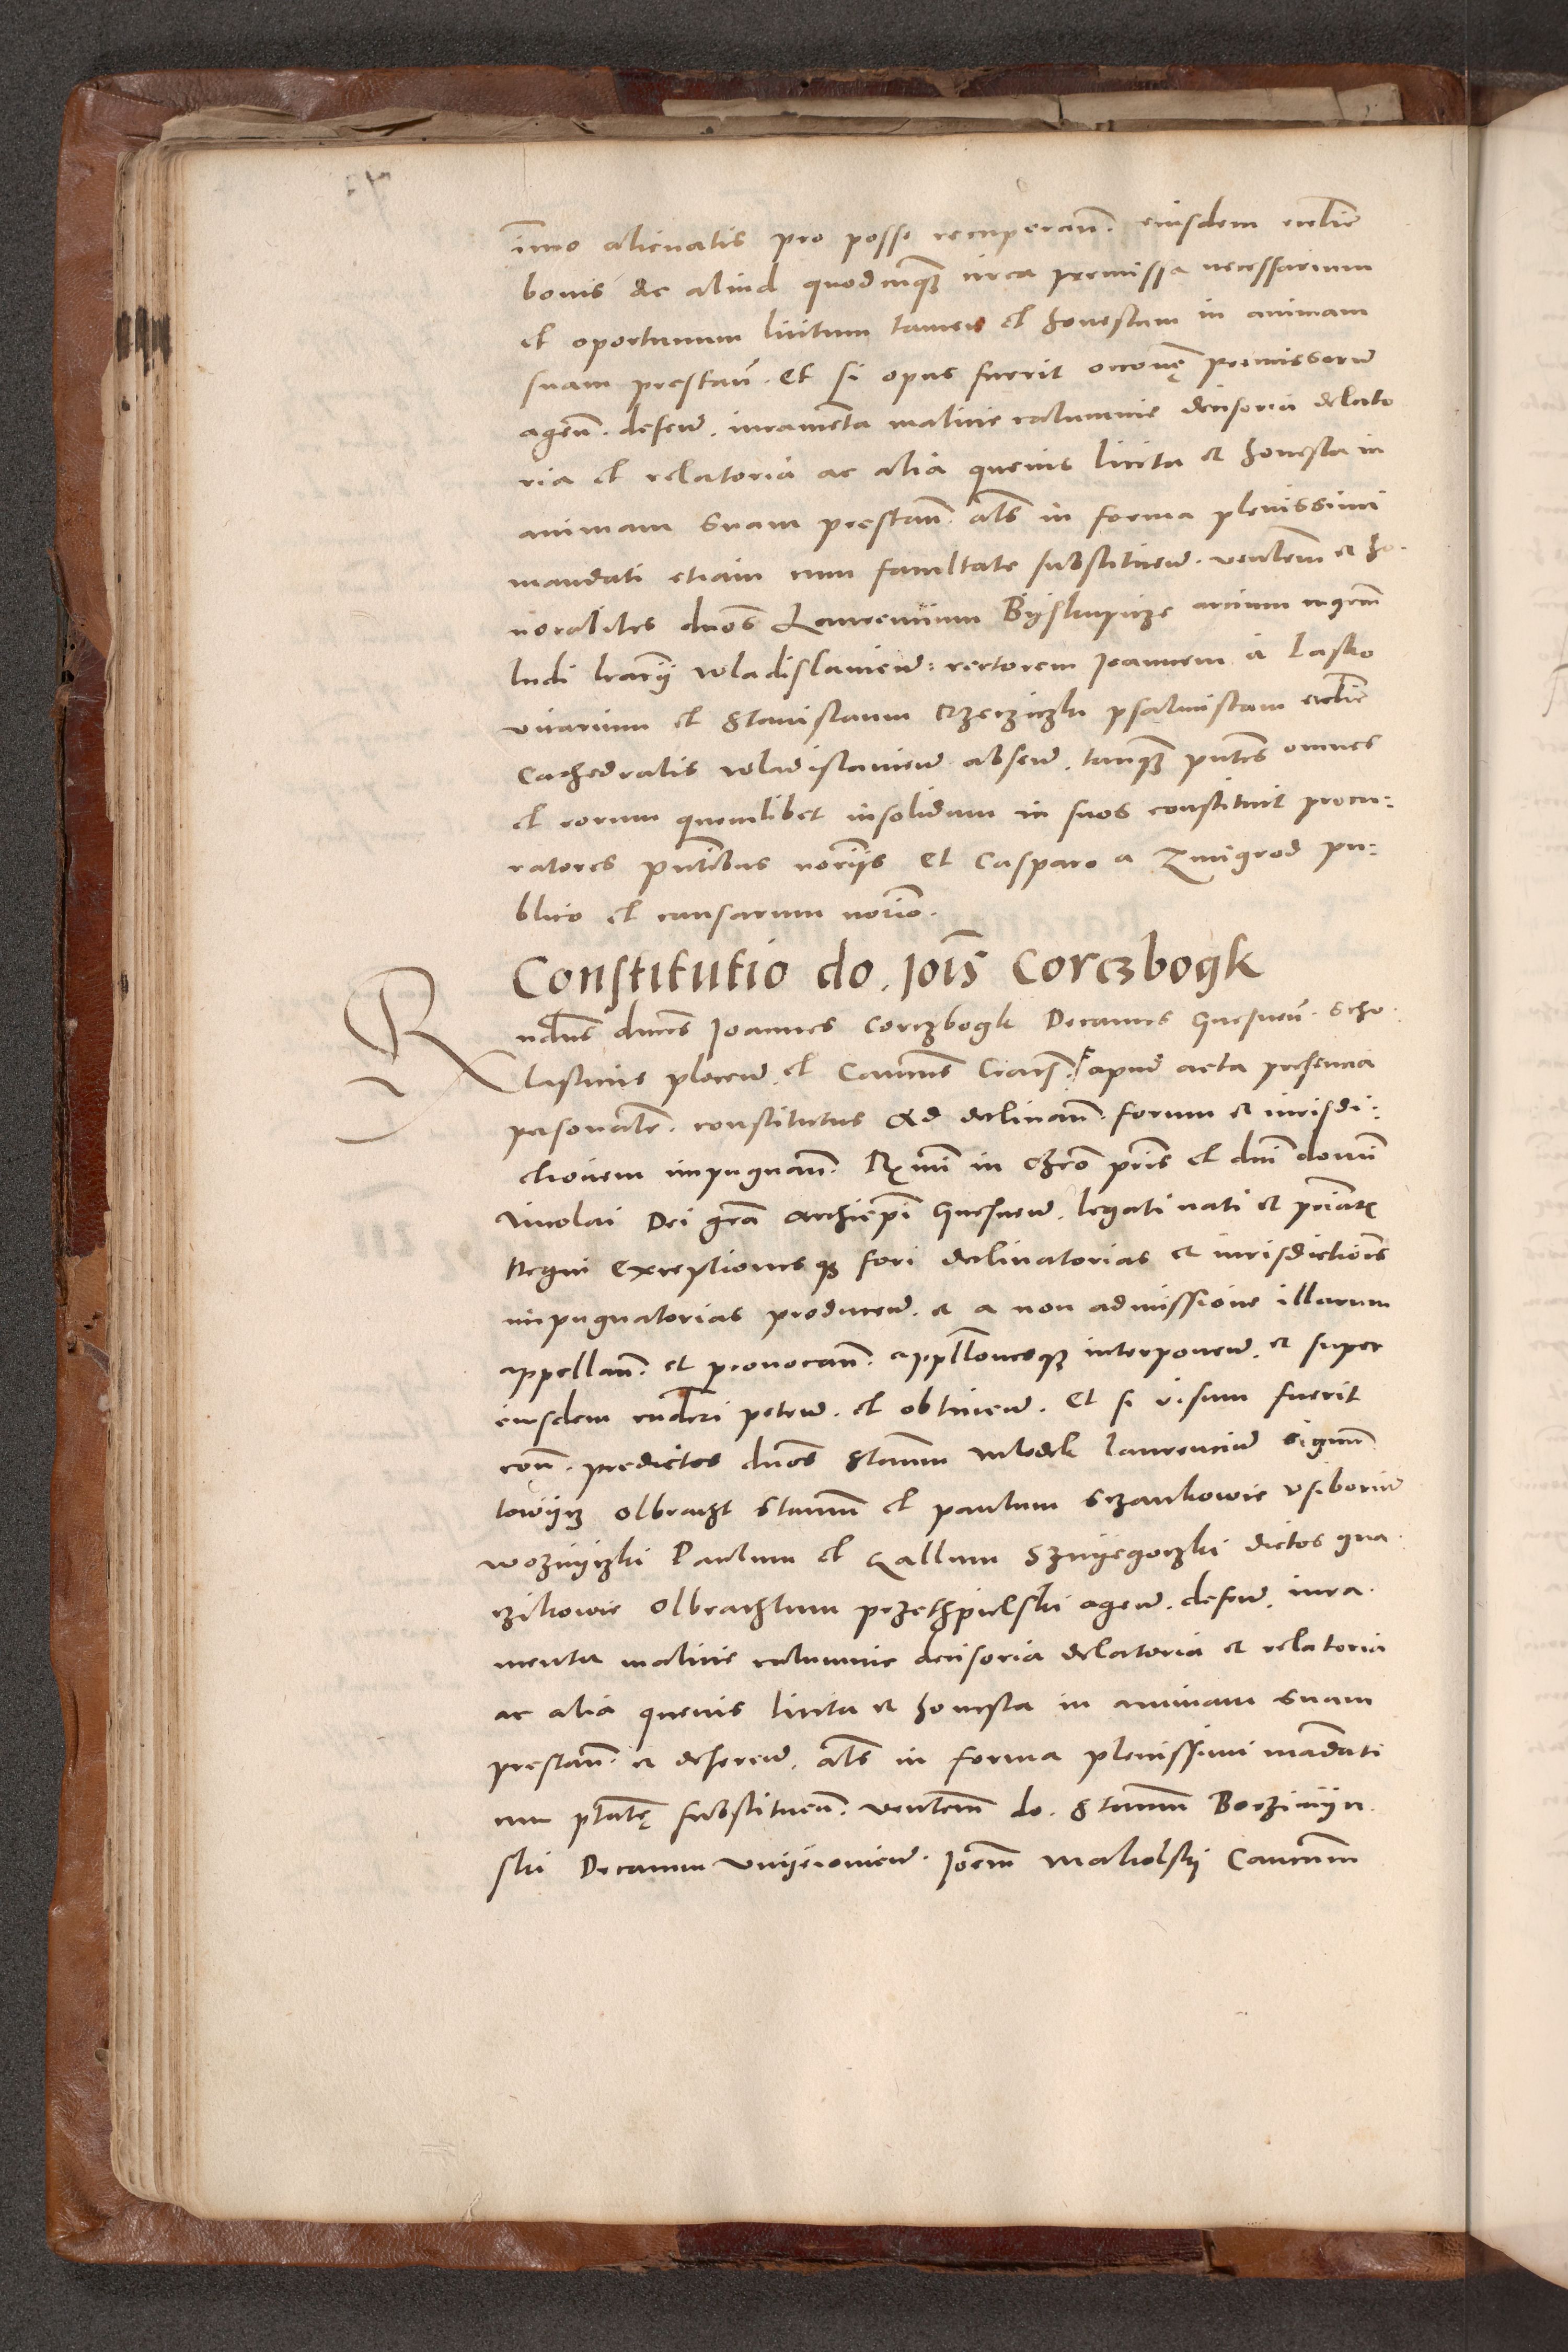 immo alienatis pro posse recuperan̄. eiusdem eccl̄ie
bonis Ac aliud quodcunq3 circa premissa necessarium
et oportunum licitum tamen et honestum in animam
suam prestan̄. Et si opus fuerit occon̄e premissorū
agen̄. defen̄. iuramēta malicie calumnie decisoria delato
ria et relatoria ac alia quevis licita et honesta in
animam suam prestan̄. al̄s in forma plenissimi
mandati etiam cum facultate substituen̄. ven̄lem et ho-
norabiles dn̄os Laurencium Byskupicze arcium mgr̄m
ludi lr̄arij wladislavien̄: rectorem Joannem a Lasko
vicarium et Stanislaum Crzecziczki psalmistam eccl̄ie
Cathedralis wladislavien̄ absen̄. tanq3 pn̄tes omnes
et eorum quemlibet insolidum in suos constituit procu:
ratores pn̄tibus nor̄ijs Et Casparo a Zmigrod pu:
blico et causarum nor̄io.
Constitutio do. Jois̄ Corczbogk
Rndus̄ dn̄us Joannes Corczbogk Decanus Gnesnen̄. Scho-
lasticus plocen̄. et Can̄cus Crac̄. apud acta presencia
personalr̄. constitutus Ad declinan̄. forum et iurisdi:
ctionem impugnan̄. Rx̄mi in chr̄o pr̄is et dn̄i domi
Nicolai Dei gr̄a archiep̄i Gnesnen̄. legati nati et prīatis
Regni Exceptionesq3 fori declinatorias et iurisdiction̄is
impugnatorias producen̄. et a non admissione illarum
appellan̄. et provocan̄. appll̄onesq3 interponen̄. et super
eisdem rn̄deri peten̄. et obtinen̄. Et si visum fuerit
con̄. predictos dn̄os Stan̄um Mlodek Laurencium Sigmū
towijcz Olbracht Stan̄um et paulum Sczankowie Vsiborium
Woznyczki Paulum et Gallum Sznyegoczki dictos gna-
czikowie Olbrachtum przethpielski agen̄. defen̄. iura-
menta malicie calumnie decisoria delatoria et relatoria
ac alia quevis licita et honesta in animam suam
prestan̄. et deferen̄. al̄s in forma plenissimi mādati
cum ptātę substituen̄. ven̄lem do. Stan̄um Borzimyn-
ski Decanum Vnyeiovien̄. Joem̄ Makolski Can̄cum